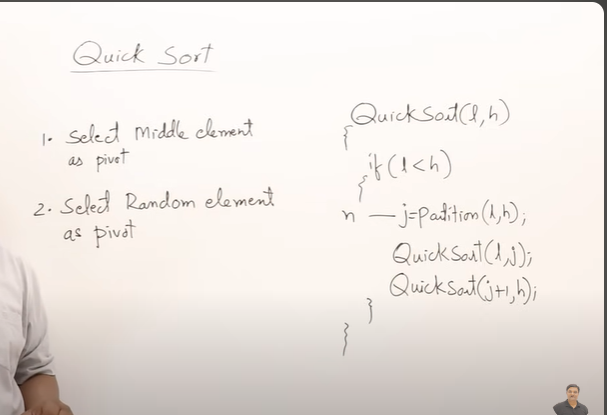 Quick Sort
1. Select Middle element
as pivot
2. Select Random element
as pivot
QuickSort(l,h)
{
if(l<h)
{
n — j=Partition(l,h);
QuickSort(l,j);
QuickSort(j+1,h);
}
}